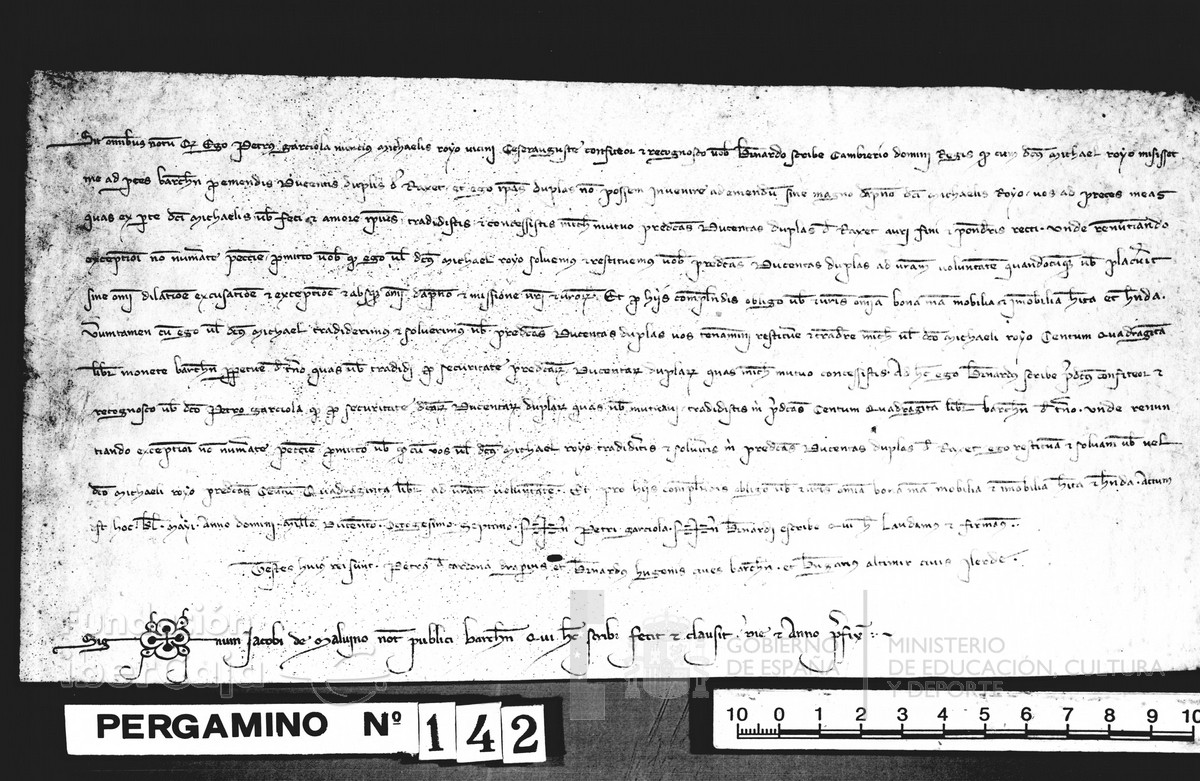 Sit omnibus notum qd Ego Petrus garciola nuncius Michaelis royo vicini Cesarauguste confiteor et recognosco vob Bernardo scribe Cambiatorio domini Regis qd cum dcus Michael royo misisset
me ad ptes barchn emendis Ducentis duplis de Raxet et ego ipsas duplas non possem invenire ad emendum sine magno dapno dci Michaelis Royo vos ad preces meas
quas ex pte dci Michaelis vob feci et amore ipius tradidistis et concessistis mich mutuo predcas Ducentas duplas de Raxet auri fini et ponderis recti unde renuntiando
exceptioi non numate peccie promitto vob qd ego vel dcus Michael royo solvemus et restituemus vob predcas Ducentas duplas ad vram voluntatem quandocumque vob placuerit
sine omi dilatione excusatioe et exceptioe et absque omi dapno et missione vri et vror Et pro hiis complendis obligo vob et vris omia bona mea mobilia et imobilia hita et hnda
Verumtamen cum ego vel dcus Michael tradiderimus et solverimus vob predcas Ducentas duplas vos teneamini restituere et tradere mich vel dco Michaeli royo Centum Quadraginta
libr monete barchn perpetue de tno quas vob tradidi pro securitate predcar Ducentar duplar quas mich mutuo concessistis Ad hec ego Bernardus scribe pdcus confiteor et
recognosco vob dco Petro garciola qd pro securitate dcar Ducentar duplar quas vob mutuavi tradidistis m pdcas Centum Quadraginta libr barchn de tno unde renun
tiando exceptioi non numate peccie promitto vob qd cum vos vel dcus Michael royo tradideritis et solveritis m predcas Ducentas duplas de Raxet ego restituam et solvam vob vel
dco Michaeli royo predcas Centum Quadraginta libr ad vram voluntatem Et pro hiis complendis obligo vob et vris omia bona mea mobilia et imobilia hita et hnda Actum
est hoc Anno domini Millo Ducento Septimo Sig+num Petri garciola Sig+num Bernardi escribe Qui hec Laudamus et firmamus
Testes huius rei sunt Petrus de cardona draperius et Bernardus hugonis cives barchn et altemir civis Ilerde
Sig num Jacobi de Malvino not publici barchn Qui hec scribi fecit et clausit die et Anno pfix
PERGAMINO Nº 142
10 0 1 2 3 4 5 6 7 8 9 10
Fundación
iberCaja
GOBIERNO
DE ESPAÑA
MINISTERIO
DE EDUCACIÓN, CULTURA
Y DEPORTE